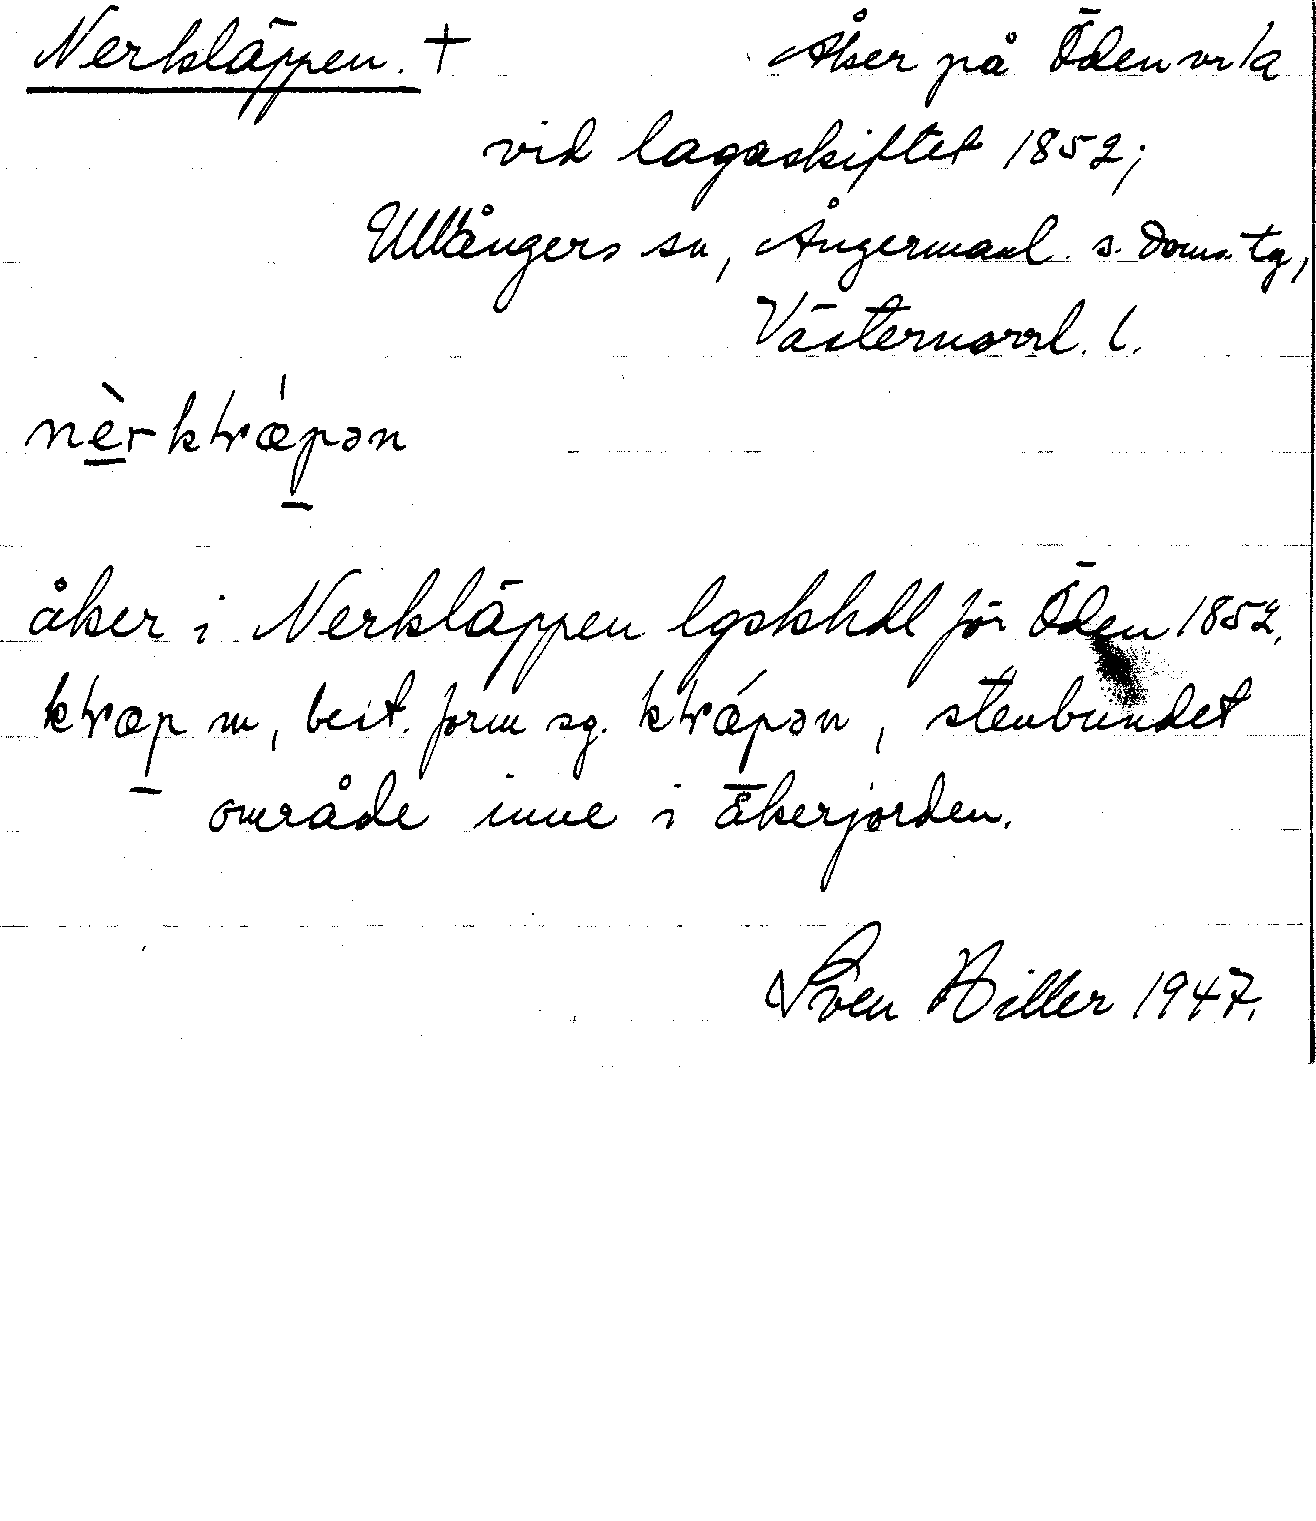 Nerkläppen. + Åker på Öden nr 1a
vid lagaskiftet 1852;
Ullångers sn, Ångermanl. s. doms. tg,
Västernorrl. l.
nèrktrǽpən
åker i Nerkläppen lgskhdl för Öden 1852.
ktræp m, best. form sg. ktrǽpən, stenbundet
område inne i åkerjorden.
Sven Hiller 1947.